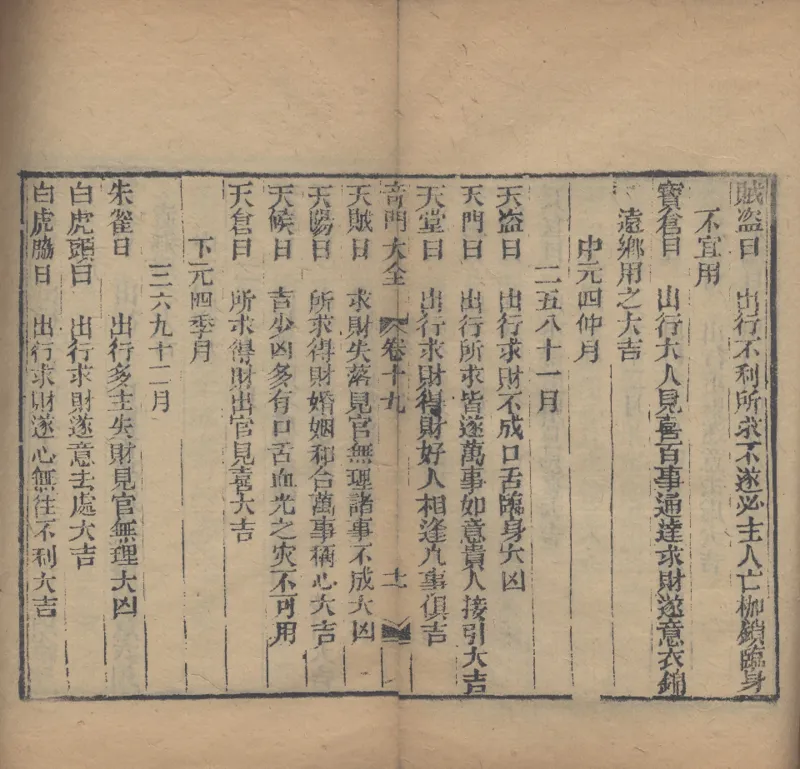 賊盗日　出行不利所求不遂必主人亡枷鎖臨身
不宜用
寳倉日　出行大人見喜百事通達求財遂意衣錦
遠鄉用之大吉
中元四仲月
二五八十一月
天盗日　出行求財不成口舌臨身大凶
天門日　出行所求皆遂萬事如意貴人接引大吉
天堂日　出行求財得財好人相逢凡事俱吉
奇門大全　卷十九　十一
天賊日　求財失落見官無理諸事不成大凶
天陽日　所求得財婚姻和合萬事稱心大吉
天候日　吉少凶多有口舌血光之灾不可用
天倉日　所求得財出官見喜大吉
下元四季月
三六九十二月
朱雀日　出行多主失財見官無理大凶
白虎頭日　出行求財遂意去處大吉
白虎脇日　出行求財遂心無往不利大吉